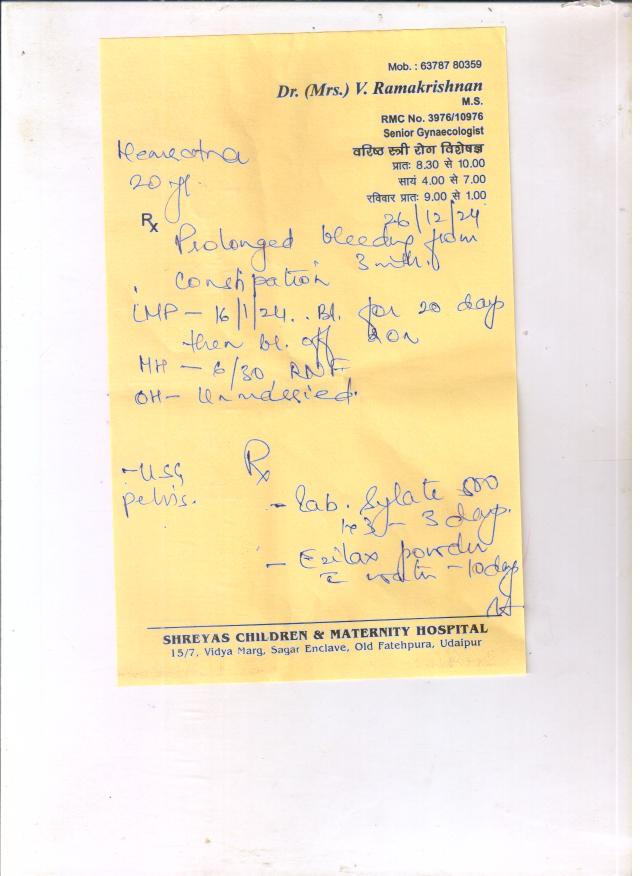 Mob. : 63787 80359
Dr. (Mrs.) V. Ramakrishnan
M.S.
RMC No. 3976/10976
Senior Gynaecologist
वरिष्ठ स्त्री रोग विशेषज्ञ
प्रातः 8.30 से 10.00
सायं 4.00 से 7.00
रविवार प्रातः 9.00 से 1.00
20 yr.
26/12/24
Rx
Prolonged bleeding from
3 mth.
Constipation
LMP - 16/1/24.. Bl. for 20 days
then bl. off & on
MH - 6/30 RNF
OH - Unmarried.
- USG
pelvis.
Rx
- Tab. Sylate 500
1x3 - 3 days.
- Ezilax powder
c water - 10 days
SHREYAS CHILDREN & MATERNITY HOSPITAL
15/7, Vidya Marg, Sagar Enclave, Old Fatehpura, Udaipur